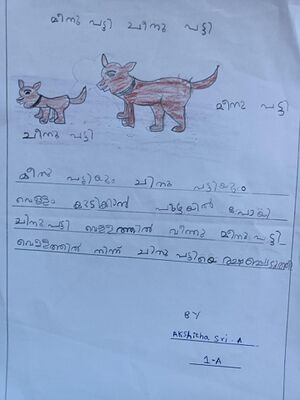 മീനു പട്ടി ചീനു പട്ടി
മീനു പട്ടി
ചീനു പട്ടി
മീനു പട്ടിയും ചിനു പട്ടിയും
വെള്ളം കുടിക്കാൻ പുഴയിൽ പോയി
ചിനു പട്ടി വെള്ളത്തിൽ വീണു മീനു പട്ടി
വെള്ളത്തിൽ നിന്ന് ചിനു പട്ടിയെ
BY
Akshitha Sri. A
1-A